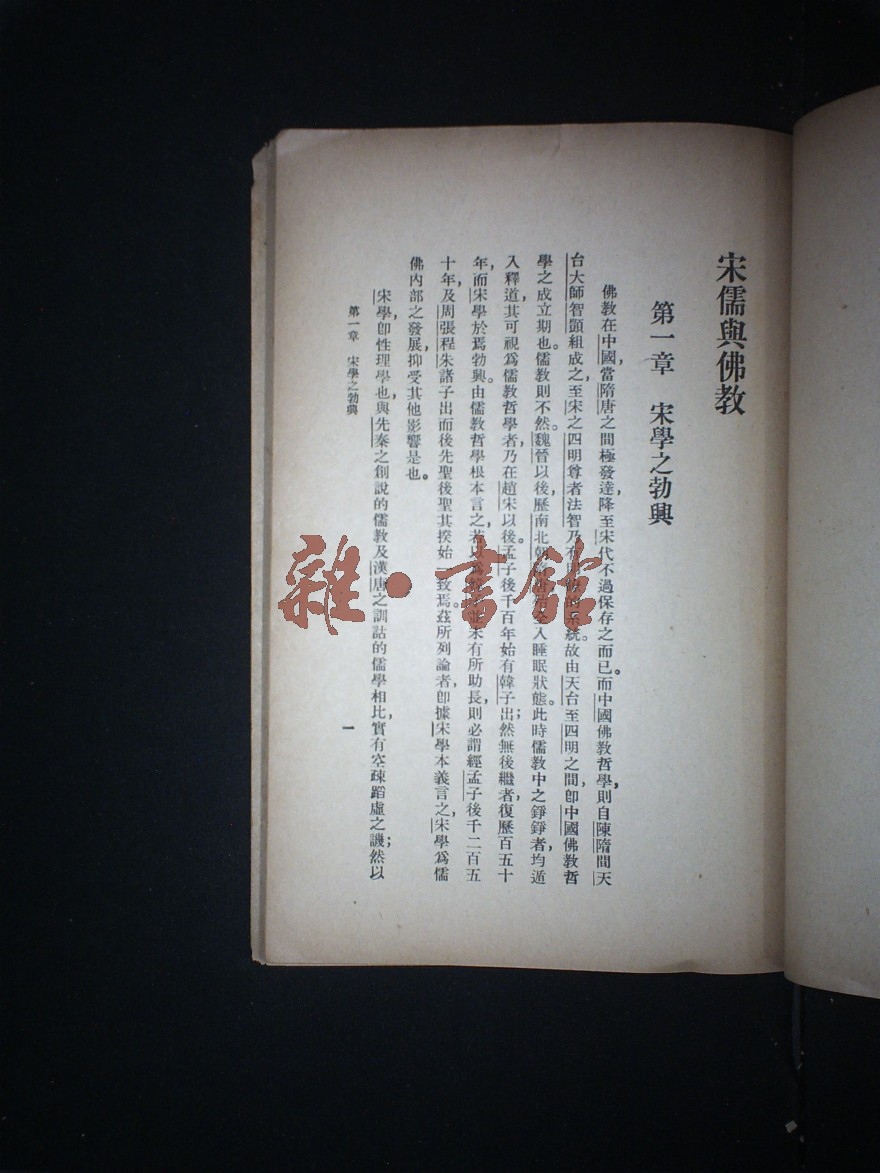 宋儒與佛教
第一章 宋學之勃興
佛教在中國，當隋唐之間極發達，降至宋代不過保存之而已。而中國佛教哲學，則自陳隋間天
台大師智顗組成之，至宋之四明尊者法智乃有 系統。故由天台至四明之間，卽中國佛教哲
學之成立期也。儒教則不然。魏晉以後，歷南北朝 入睡眠狀態。此時儒教中之錚錚者，均遁
入釋道，其可視爲儒教哲學者，乃在趙宋以後。孟子後千百年始有韓子出；然無後繼者，復歷百五十
年，而宋學於焉勃興。由儒教哲學根本言之，若以爲 未有所助長，則必謂經孟子後千二百五
十年，及周張程朱諸子出，而後先聖後聖其揆始一致焉。茲所列論者，卽據宋學本義言之，宋學爲儒
佛內部之發展，抑受其他影響是也。
宋學，卽性理學也，與先秦之創說的儒教及漢唐之訓詁的儒學相比，實有空疎蹈虛之譏；然以
第一章 宋學之勃興
一
雜·書館